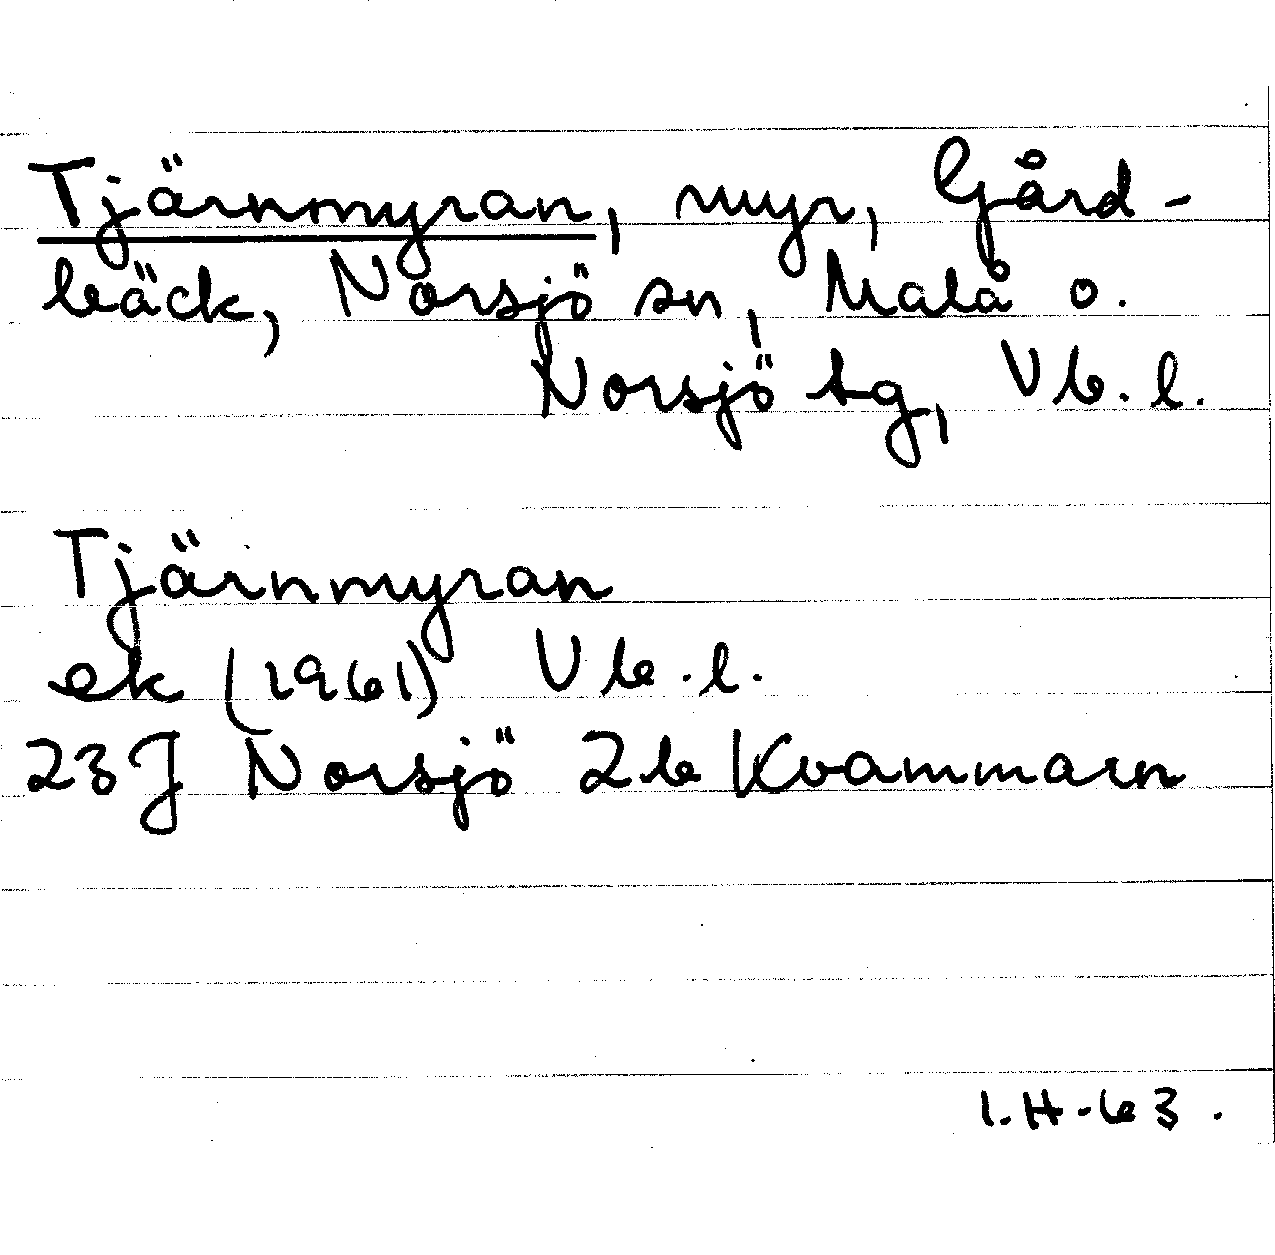 Tjärnmyran, myr, Gård-
bäck, Norsjö sn, Malå o.
Norsjö tg, Vb. l.
Tjärnmyran
ek (1961) Vb. l.
23 J Norsjö 2b Kvammarn
I. H-63.